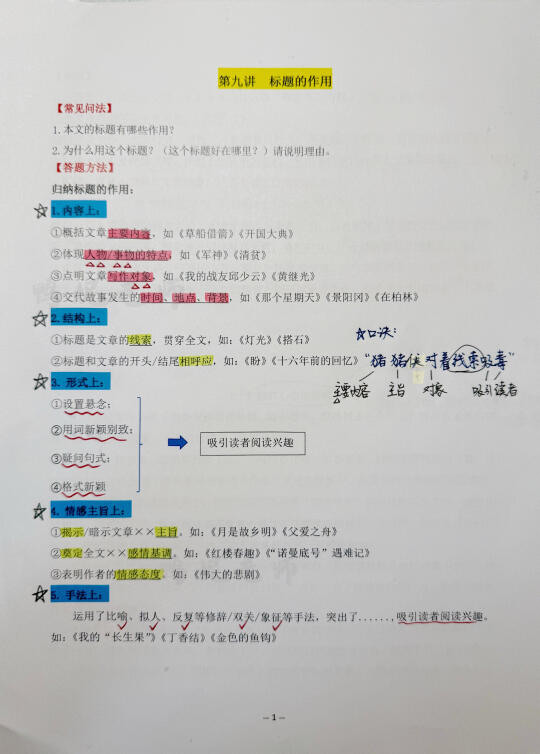 第九讲 标题的作用
【常见问法】
1.本文的标题有哪些作用?
2.为什么用这个标题?（这个标题好在哪里?）请说明理由。
【答题方法】
归纳标题的作用:
1.内容上:
①概括文章主要内容，如《草船借箭》《开国大典》
②体现人物/事物的特点，如《军神》《清贫》
③点明文章写作对象，如《我的战友邱少云》《黄继光》
④交代故事发生的时间、地点、背景，如《那个星期天》《景阳冈》《在柏林》
2.结构上:
①标题是文章的线索，贯穿全文，如:《灯光》《搭石》
☆口诀:
②标题和文章的开头/结尾相呼应，如:《盼》《十六年前的回忆》
"猪猪侠对着线索吸毒"
主要内容 主旨 对象 吸引读者
3.形式上:
①设置悬念;
②用词新颖别致;
吸引读者阅读兴趣
③疑问句式;
④格式新颖
4.情感主旨上:
①揭示/暗示文章××主旨。如:《月是故乡明》《父爱之舟》
②奠定全文××感情基调。如:《红楼春趣》《“诺曼底号”遇难记》
③表明作者的情感态度。如:《伟大的悲剧》
5.手法上:
运用了比喻、拟人、反复等修辞/双关/象征等手法，突出了......,吸引读者阅读兴趣。
如:《我的“长生果”》《丁香结》《金色的鱼钩》
–1–